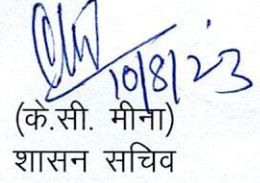 10/8/23
(के.सी. मीना)
शासन सचिव